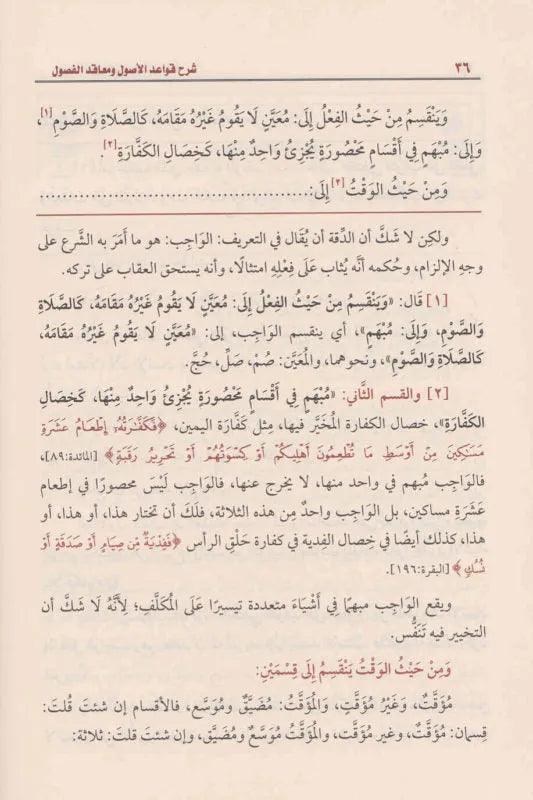 ٣٦ شرح قواعد الأصول ومعاقد الفصول
وَيَنْقَسِمُ مِنْ حَيْثُ الفِعْلُ إِلَى: مُعَيَّنٍ لَا يَقُومُ غَيْرُهُ مَقَامَهُ، كَالصَّلَاةِ وَالصَّوْمِ[١]،
وَإِلَى: مُبْهَمٍ فِي أَقْسَامٍ مَحْصُورَةٍ يُجْزِئُ وَاحِدٌ مِنْهَا، كَخِصَالِ الكَفَّارَةِ[٢].
وَمِنْ حَيْثُ الوَقْتُ[٣] إِلَى:................................................
ولكِن لا شَكَّ أن الدِّقة أن يُقَال في التعريف: الوَاجِب: هو ما أَمَرَ به الشَّرع على
وجهِ الإلزام، وحُكمه أنَّه يُثاب عَلَى فِعْلِهِ امتثالًا، وأنه يستحق العقاب على تركه.
[١] قَال: «وَيَنْقَسِمُ مِنْ حَيْثُ الفِعْلُ إِلَى: مُعَيَّنٍ لَا يَقُومُ غَيْرُهُ مَقَامَهُ، كَالصَّلَاةِ
وَالصَّوْمِ، وَإِلَى: مُبْهَمٍ»، أي ينقسم الوَاجِب، إلى: «مُعَيَّنٍ لَا يَقُومُ غَيْرُهُ مَقَامَهُ،
كَالصَّلَاةِ وَالصَّوْمِ»، ونحوهما، والمُعَيَّن: صُمْ، صَلِّ، حُجَّ.
[٢] والقسم الثَّاني: «مُبْهَمٍ فِي أَقْسَامٍ مَحْصُورَةٍ يُجْزِئُ وَاحِدٌ مِنْهَا، كَخِصَالِ
الكَفَّارَةِ»، خصال الكفارة المُخَيَّر فيها، مِثل كَفَّارَة اليمين، ﴿فَكَفَّٰرَتُهُۥٓ إِطۡعَامُ عَشَرَةِ
مَسَٰكِينَ مِنۡ أَوۡسَطِ مَا تُطۡعِمُونَ أَهۡلِيكُمۡ أَوۡ كِسۡوَتُهُمۡ أَوۡ تَحۡرِيرُ رَقَبَةٖ﴾ [المائدة:٨٩]،
فالوَاجِب مُبهم في واحد منها، لا يخرج عنها، فالوَاجِب لَيْسَ محصورا في إطعام
عَشَرَةِ مساكين، بل الوَاجب واحدٌ مِن هذه الثلاثة، فلَكَ أن تختار هذا، أو هذا، أو
هذا، كذلك أيضًا في خِصال الفِدية في كفارة حَلْقِ الرأس ﴿فَفِدۡيَةٞ مِّن صِيَامٍ أَوۡ صَدَقَةٍ أَوۡ
نُسُكٖ﴾ [البقرة:١٩٦].
ويقع الوَاجِب مبهمًا في أَشْيَاءَ متعددة تيسيرًا عَلَى المُكَلَّفِ؛ لِأَنَّهُ لَا شَكَّ أن
التخيير فيه تَنَفُّس.
وَمِنْ حَيْثُ الوَقْتُ يَنْقَسِمُ إِلَى قِسْمَيْنِ:
مُؤَقَّتٌ، وَغَيْرُ مُؤَقَّتٍ، وَالمُؤَقَّتُ: مُضَيَّقٌ وَمُوَسَّع، فالأقسام إن شئتَ قُلتَ:
قِسمان: مُؤَقَّتٌ، وغير مؤقَّت، والمُؤَقَّتُ مُوَسَّعٌ ومُضَيَّق، وإن شئتَ قلتَ: ثلاثة: